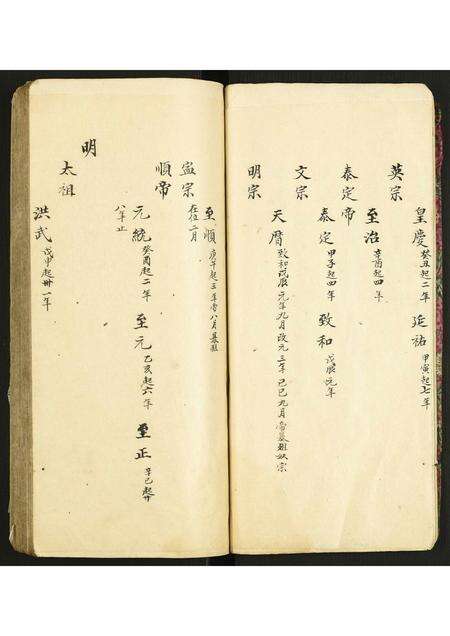 皇慶 癸丑起二年 延祐 甲寅起七年
英宗
至治 辛酉起四年
泰定帝
泰定 甲子起四年 致和 戊辰元年
文宗
天曆 致和戊辰元年九月改元三年己巳九月帝暴
明宗
至順 庚午起三年八月暴殂
寧宗
在位二月
順帝
元統 癸酉起二年 至元 乙亥起六年 至正 辛巳起廿
八年止
明
太祖
洪武 戊申起卅一年